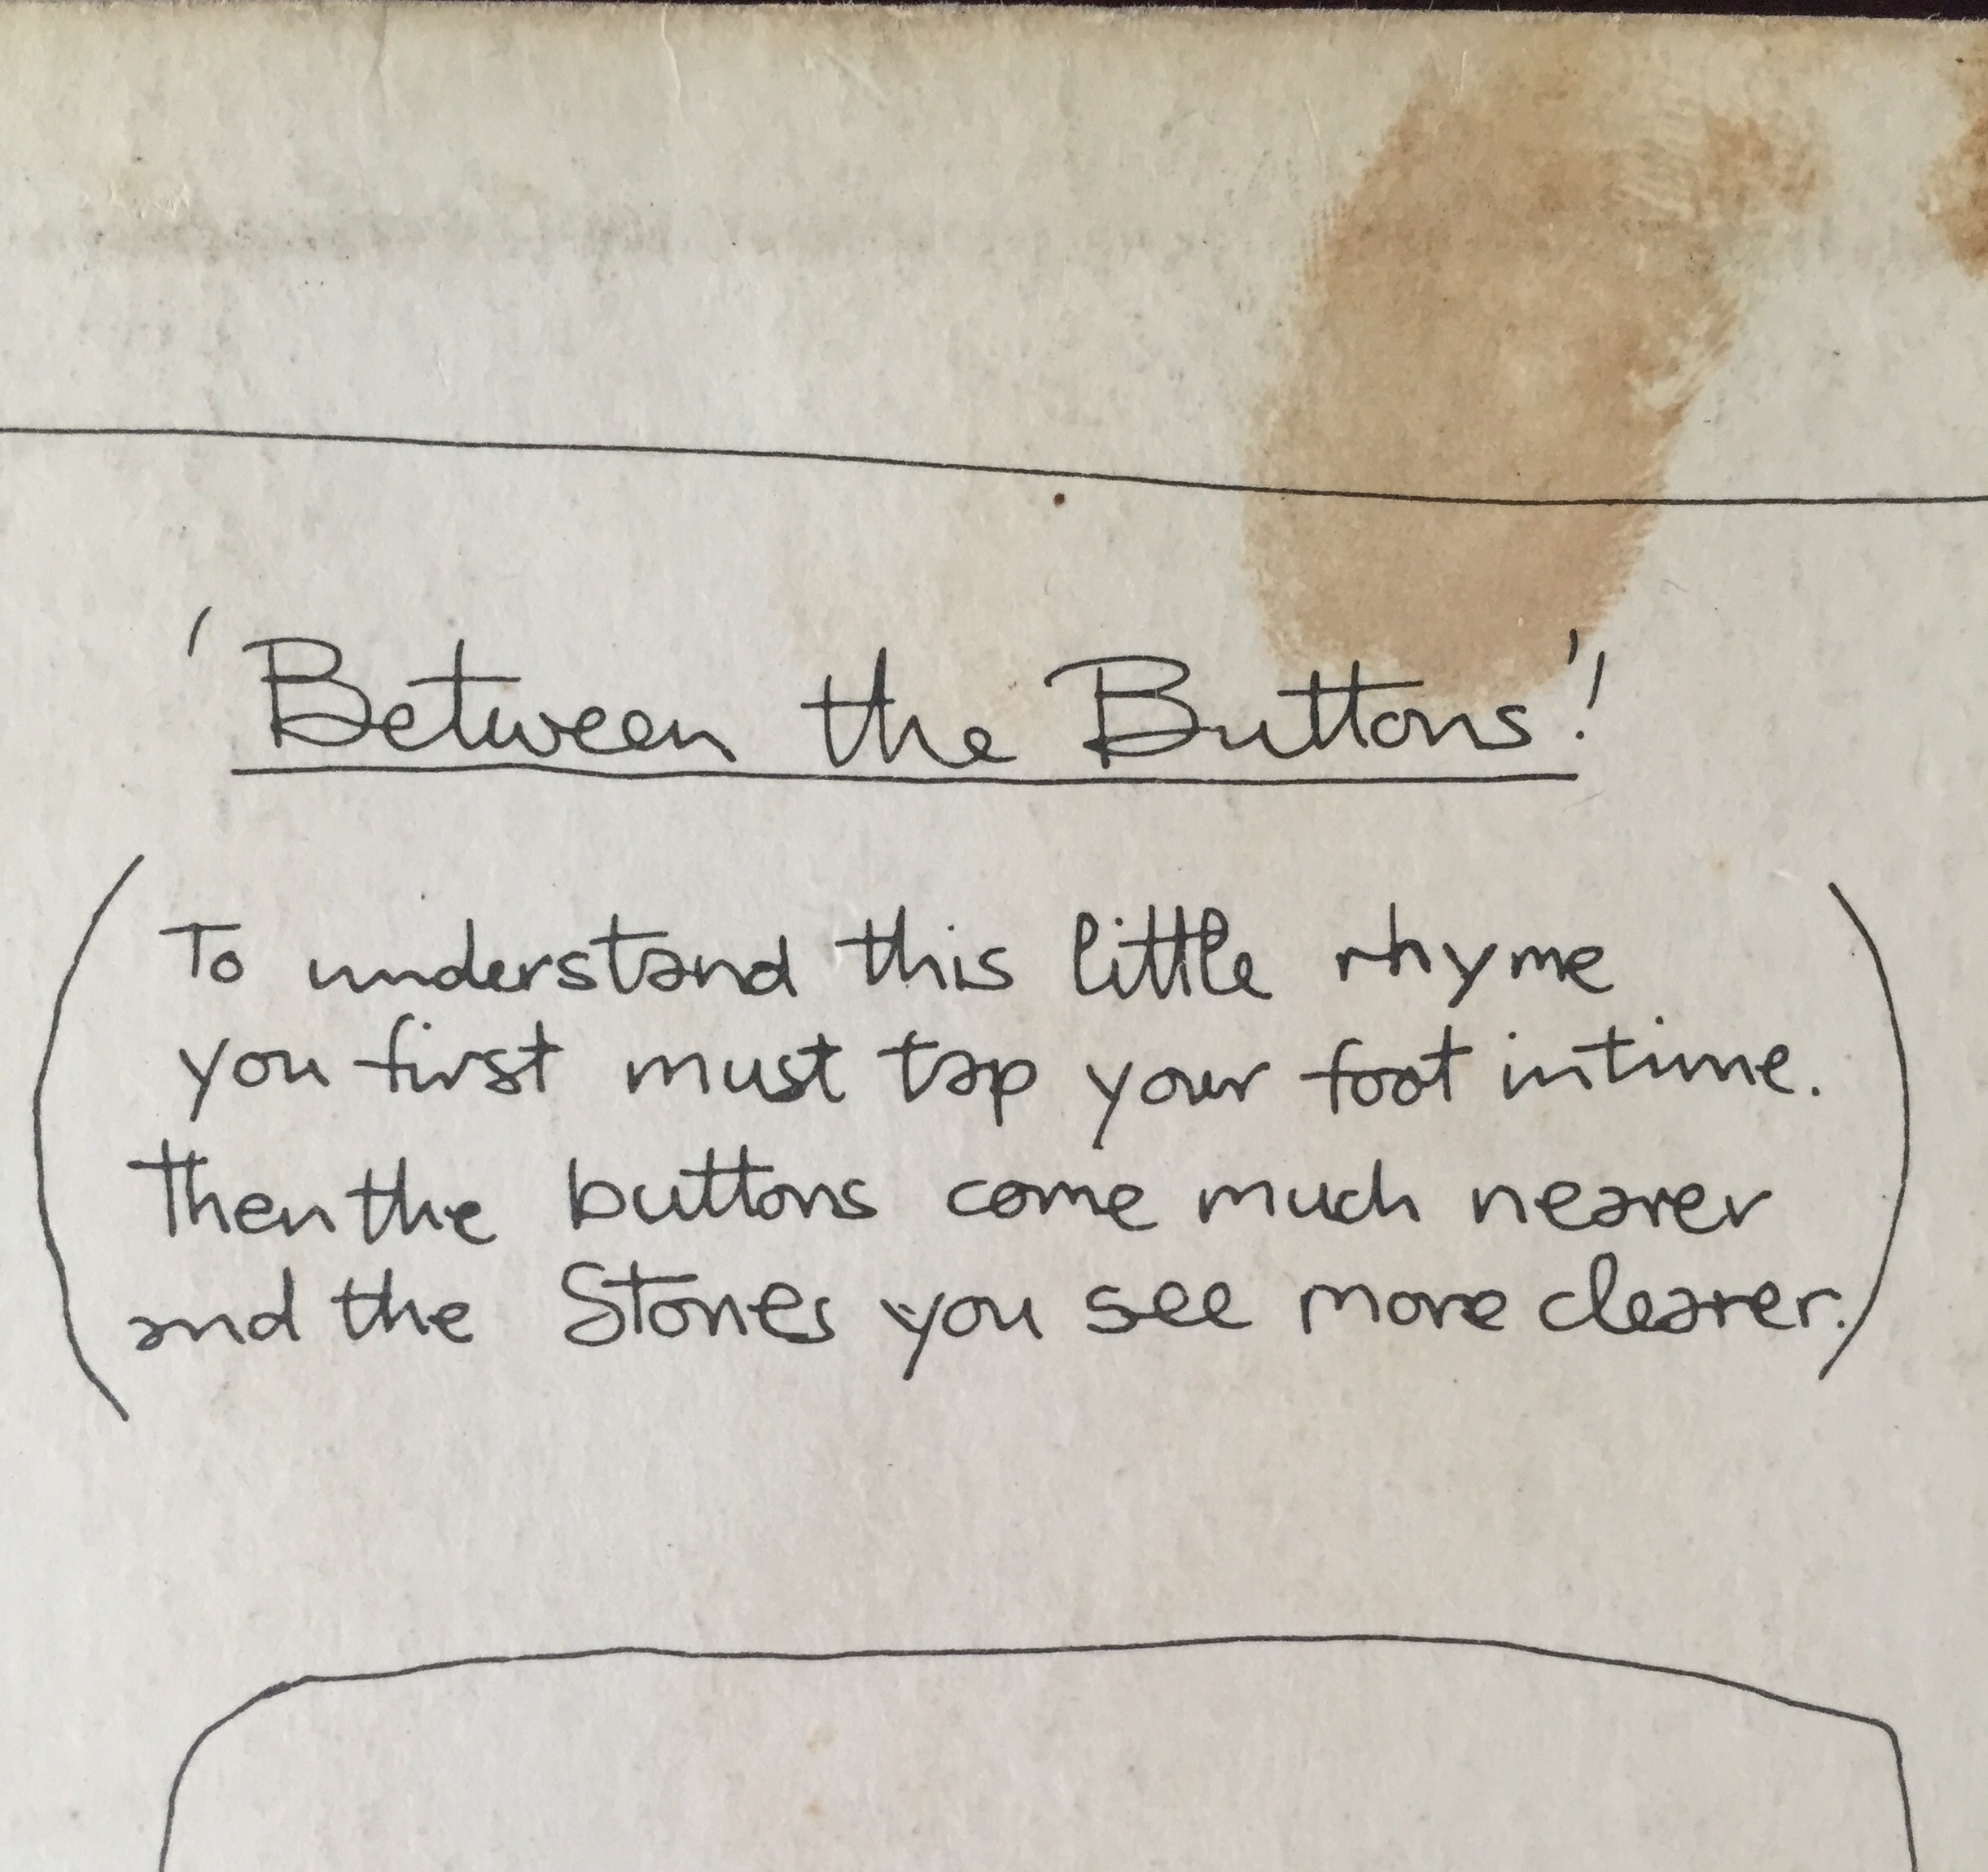 'Between the Buttons'!
(To understand this little rhyme
you first must tap your foot in time.
Then the buttons come much nearer
and the Stones you see more clearer.)